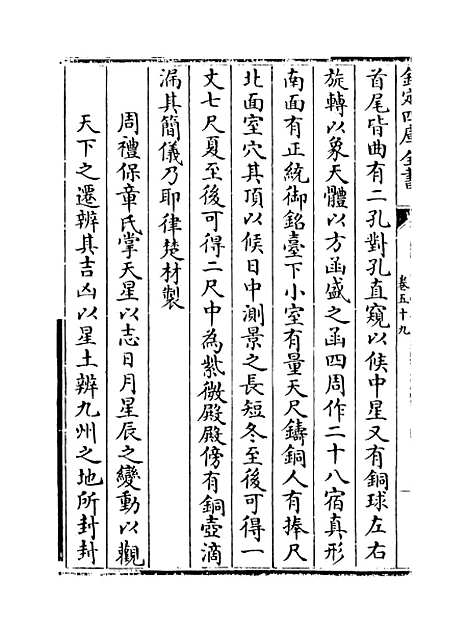 欽定四庫全書
卷五十九
首尾皆曲有二孔對孔直窺以候中星又有銅球左右
旋轉以象天體以方函盛之函四周作二十八宿真形
南面有正統御銘臺下小室有量天尺鑄銅人有捧尺
北面室穴其頂以候日中測景之長短冬至後可得一
丈七尺夏至後可得二尺中為紫微殿殿傍有銅壺滴
漏其簡儀乃耶律楚材製
周禮保章氏掌天星以志日月星辰之變動以觀
天下之遷辨其吉凶以星土辨九州之地所封封